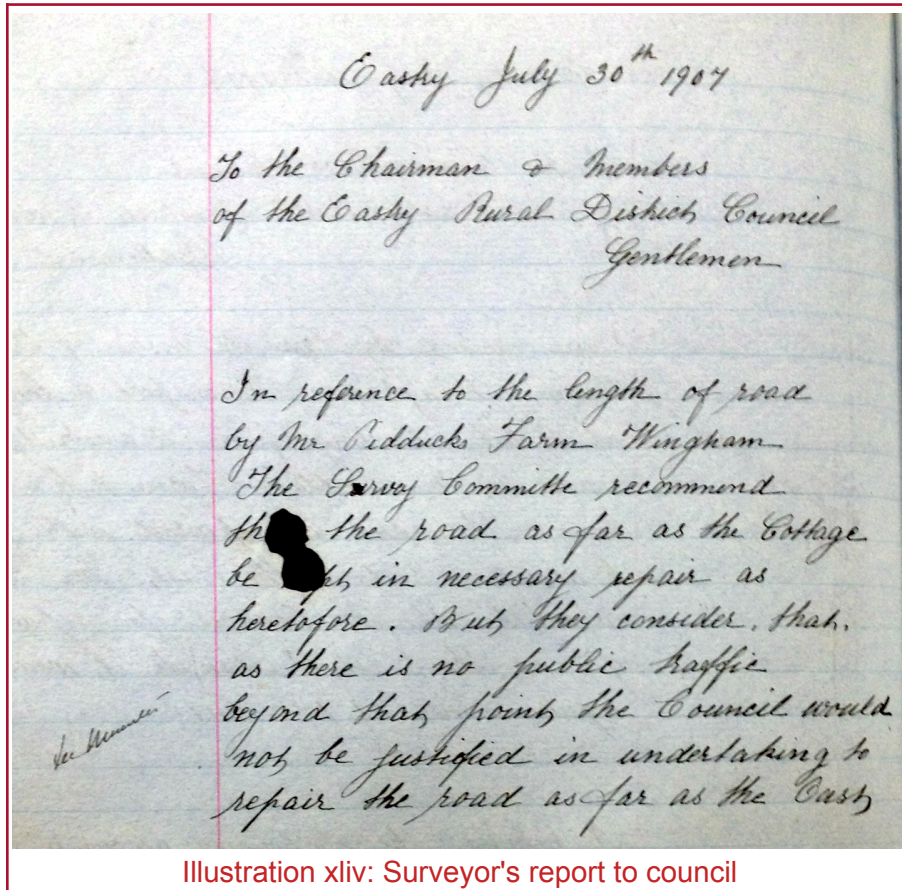 Eastry July 30th 1907
To the Chairman & Members
of the Eastry Rural District Council
Gentlemen
In reference to the length of road
by Mr Pidducks Farm Wingham
The Survey Committe recommend
the road as far as the Cottage
be in necessary repair as
heretofore. But they consider, that,
as there is no public traffic
beyond that point the Council would
not be justified in undertaking to
repair the road as far as the Oast
See Minutes
Illustration xliv: Surveyor's report to council